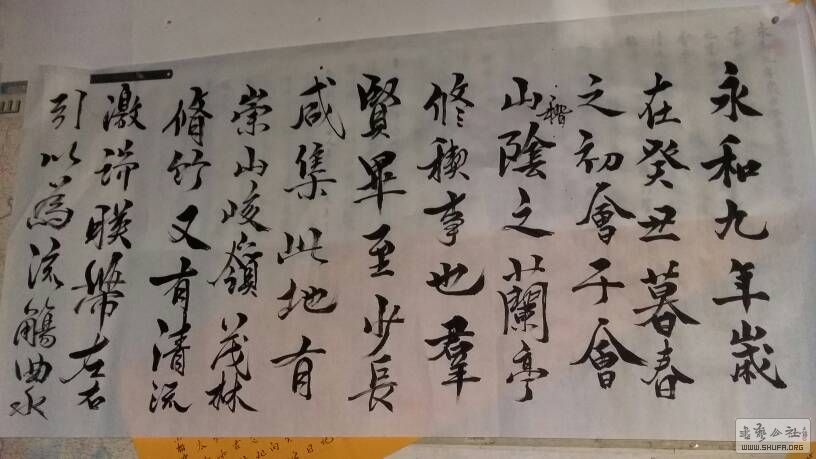 永和九年歲
在癸丑暮春
之初會于會
稽山陰之蘭亭
修稧事也羣
賢畢至少長
咸集此地有
崇山峻嶺茂林
脩竹又有清流
激湍暎帶左右
引以為流觴曲水
書藝公社
WWW.SHUFA.ORG